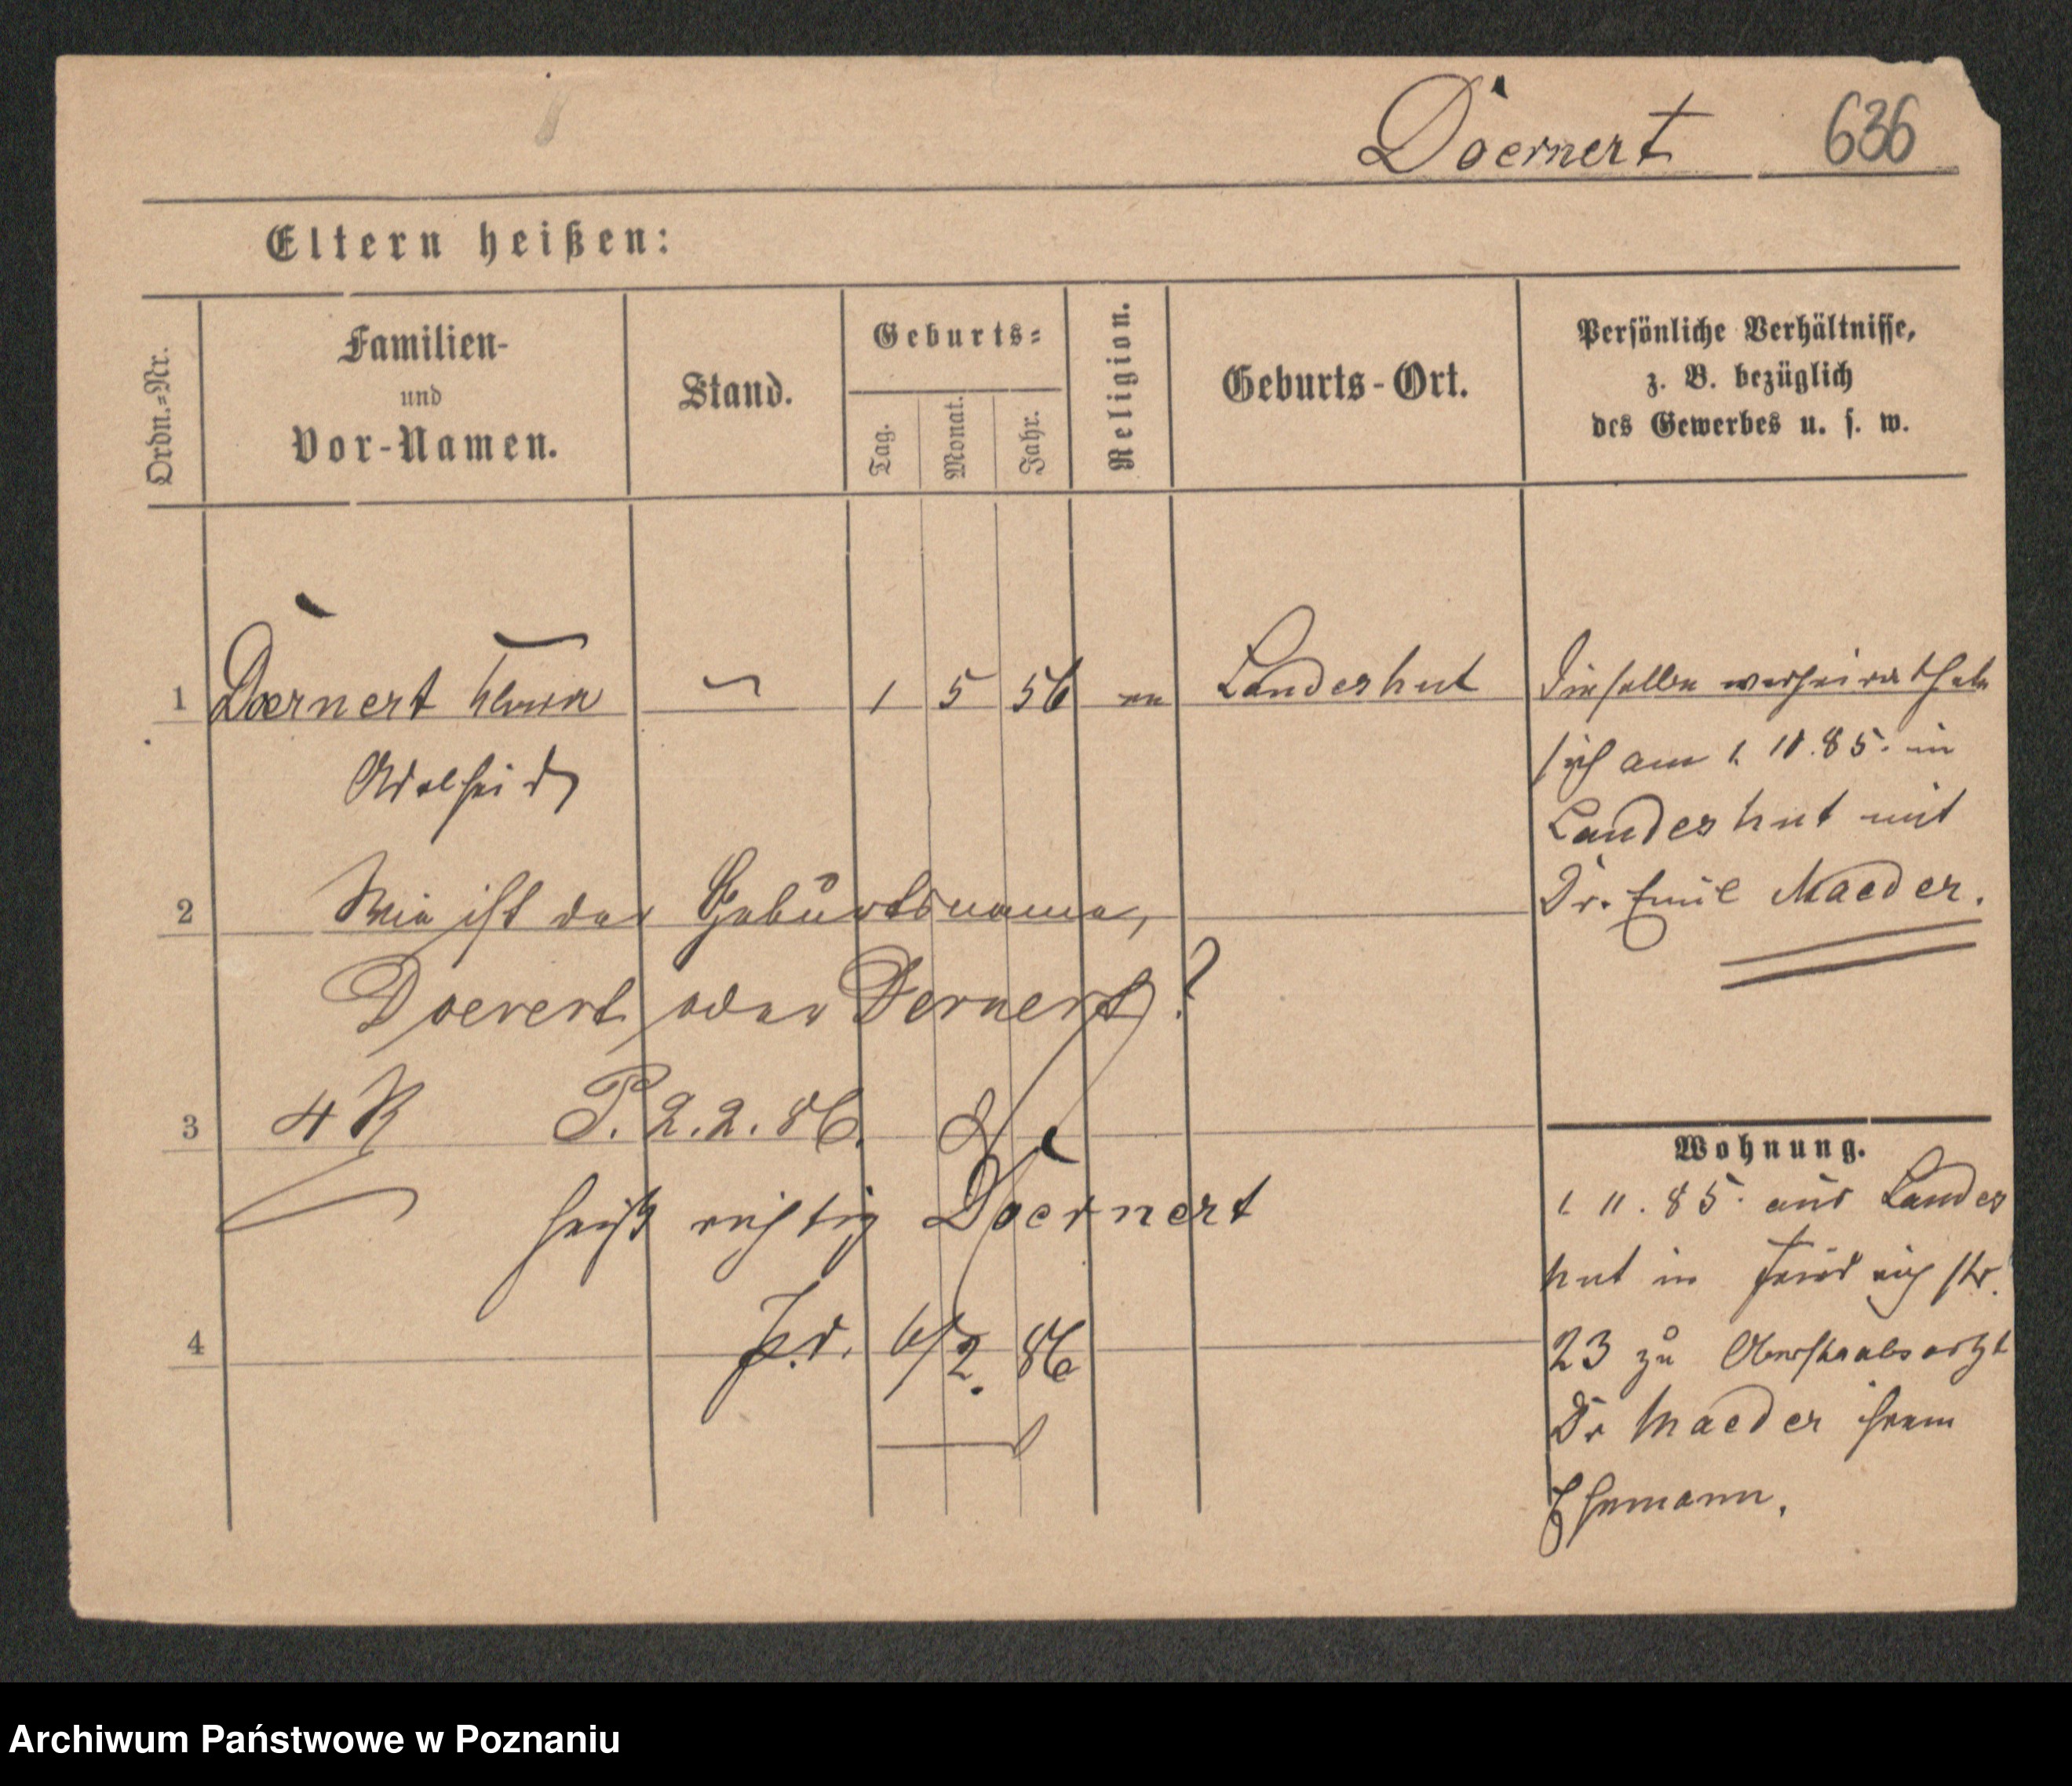 Doernert 636
Eltern heißen:
Ordn.=Nr.
Familien-
und
Vor-Namen.
Stand.
Geburts=
Tag.
Monat.
Jahr.
Religion.
Geburts-Ort.
Persönliche Verhältnisse,
z. B. bezüglich
des Gewerbes u. s. w.
1 Doernert 1 5 56 Landeshut
Adelheid
Dieselbe verheirathete
sich am 1. 10. 85. in
Landeshut mit
Dr. Emil Maeder.
2 Wie ist der Geburtsname,
Doerert oder Dernert?
3 P. 2.2.86.
heißt richtig Doernert
4 6/2. 86
Wohnung.
1 11. 85. aus Landes
hut in Friedrichstr.
23 zu Oberstabsarzt
Dr Maeder ihrem
Ehemann.
Archiwum Państwowe w Poznaniu